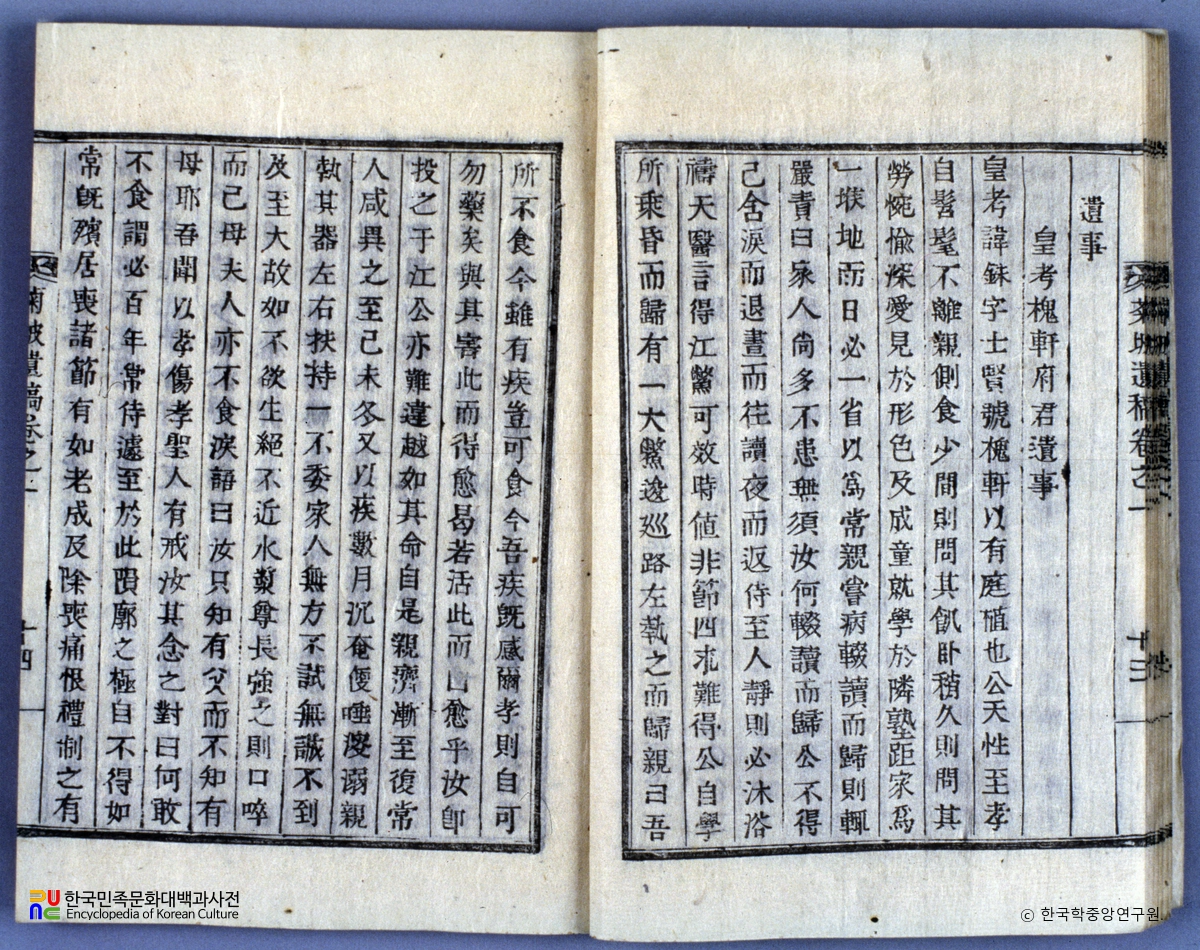 遺事
皇考槐軒府君遺事
皇考諱銖字士賢號槐軒以有庭植也公天性至孝
自髫髦不離親側食少間則問其飢臥稍久則問其
勞惋愉深愛見於形色及成童就學於隣塾距家爲
一堠地而日必一省以爲常親嘗病輟讀而歸則輒
嚴責曰家人尙多不患無須汝何輟讀而歸公不得
己含淚而退晝而往讀夜而返侍至人靜則必沐浴
禱天醫言得江鱉可效時値非節四求難得公自學
所乘昏而歸有一大鱉逡巡路左執之而歸親曰吾
所不食今雖有疾豈可食今吾疾旣感爾孝則自可
勿藥矣與其害此而得愈曷若活此而愈乎汝卽
投之于江公亦難違越如其命自是親濟漸至復常
人咸異之至己未冬又以疾數月沉奄便唾溲溺親
執其器左右扶持一不委家人無方不試無誠不到
及至大故如不欲生絕不近水漿尊長強之則口啐
而已母夫人亦不食淚語曰汝只知有父而不知有
母耶吾聞以孝傷孝聖人有戒汝其念之對曰何敢
不食謂必百年常侍遽至於此隕廓之極自不得如
常旣殯居喪諸節有如老成及除喪痛恨禮制之有
菊坡遺稿卷之二
十四
한국민족문화대백과사전
Encyclopedia of Korean Culture
ⓒ 한국학중앙연구원